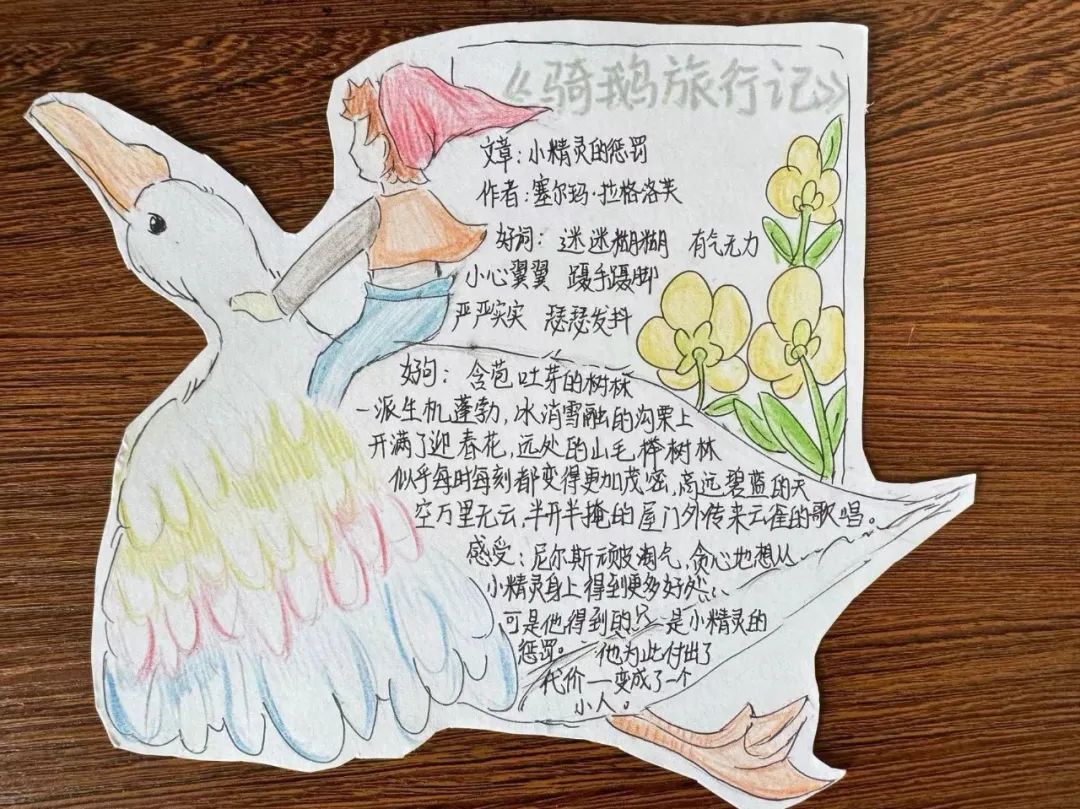 《骑鹅旅行记》
文章：小精灵的惩罚
作者：塞尔玛·拉格洛芙
好词：迷迷糊糊 有气无力
小心翼翼 蹑手蹑脚
严严实实 瑟瑟发抖
好句：含苞吐芽的树林
一派生机蓬勃，冰消雪融的沟渠上
开满了迎春花，远处的山毛榉树林
似乎每时每刻都变得更加茂密，高远碧蓝的天
空万里无云，半开半掩的屋门外传来云雀的歌唱。
感受：尼尔斯顽皮淘气，贪心地想从
小精灵身上得到更多好处……
可是他得到的只是小精灵的
惩罚。他为此付出了
代价—变成了一个
小人。